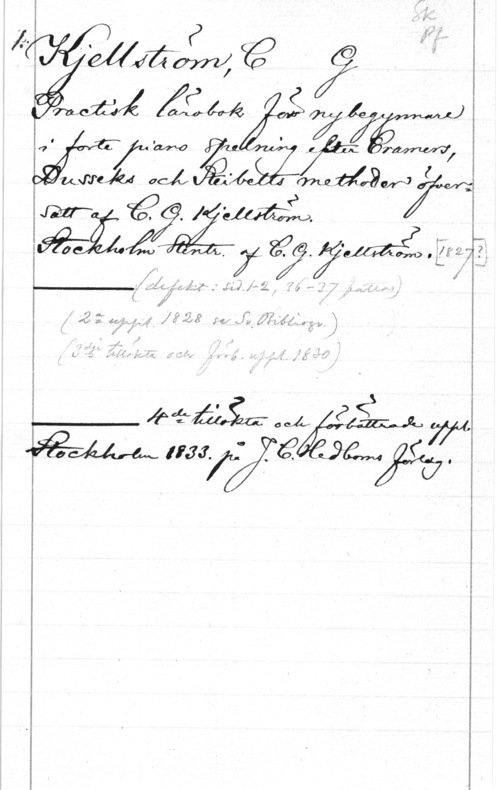 Sk
Pf
1: Kjellström, C G
Practisk lärobok för nybegynnare
i forte piano spelning efter Cramers,
Dusseks och Steibelts methoder öfver-
satt af C. G. Kjellström.
Stockholm Stentr. af C. G. Kjellström. [1827?]
(defekt: sid. 1-2, 36-37 fattas)
(2a uppl. 1828 se Sv. Bibliogr.)
(3dje tillökta och förb. uppl. 1830)
4de tillökta och förbättrade uppl.
Stockholm 1833. på J. C. Hedboms förlag.